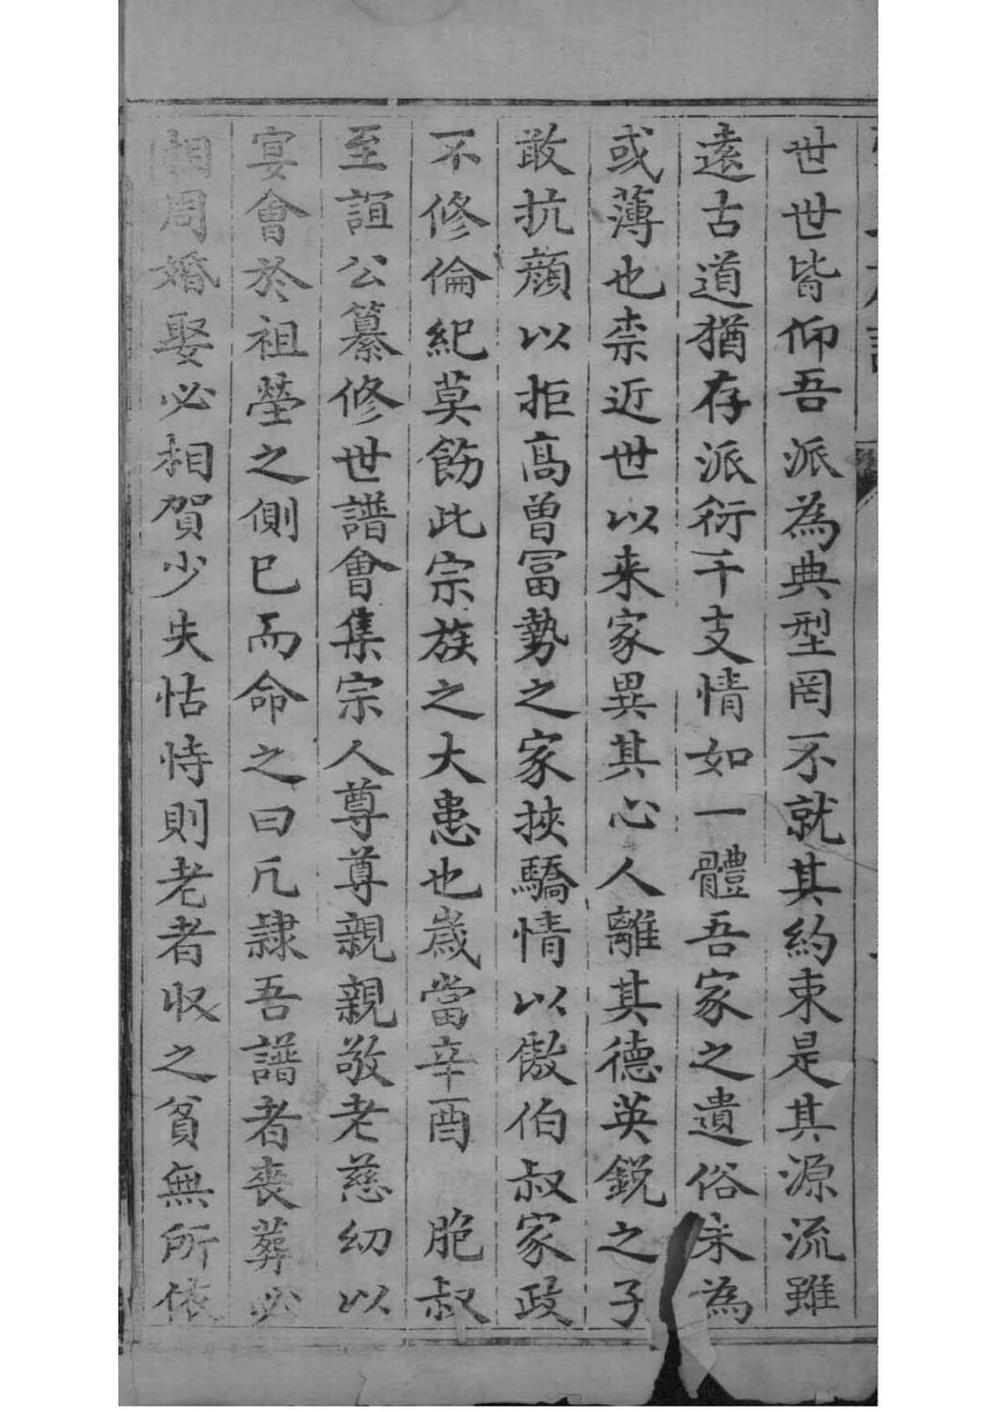 世世皆仰吾派為典型罔不就其約束是其源流雖
遠古道猶存派衍千支情如一體吾家之遺俗未為
或薄也柰近世以来家異其心人離其德英銳之子
敢抗顔以拒高曾冨勢之家挾驕情以傲伯叔家政
不修倫紀莫飭此宗族之大患也嵗當辛酉 胞叔
至誼公纂修世譜會集宗人尊尊親親敬老慈幼以
宴會於祖塋之側已而命之曰凢隷吾譜者喪葬必
相周婚娶必相賀少失怙恃則老者収之貧無所依